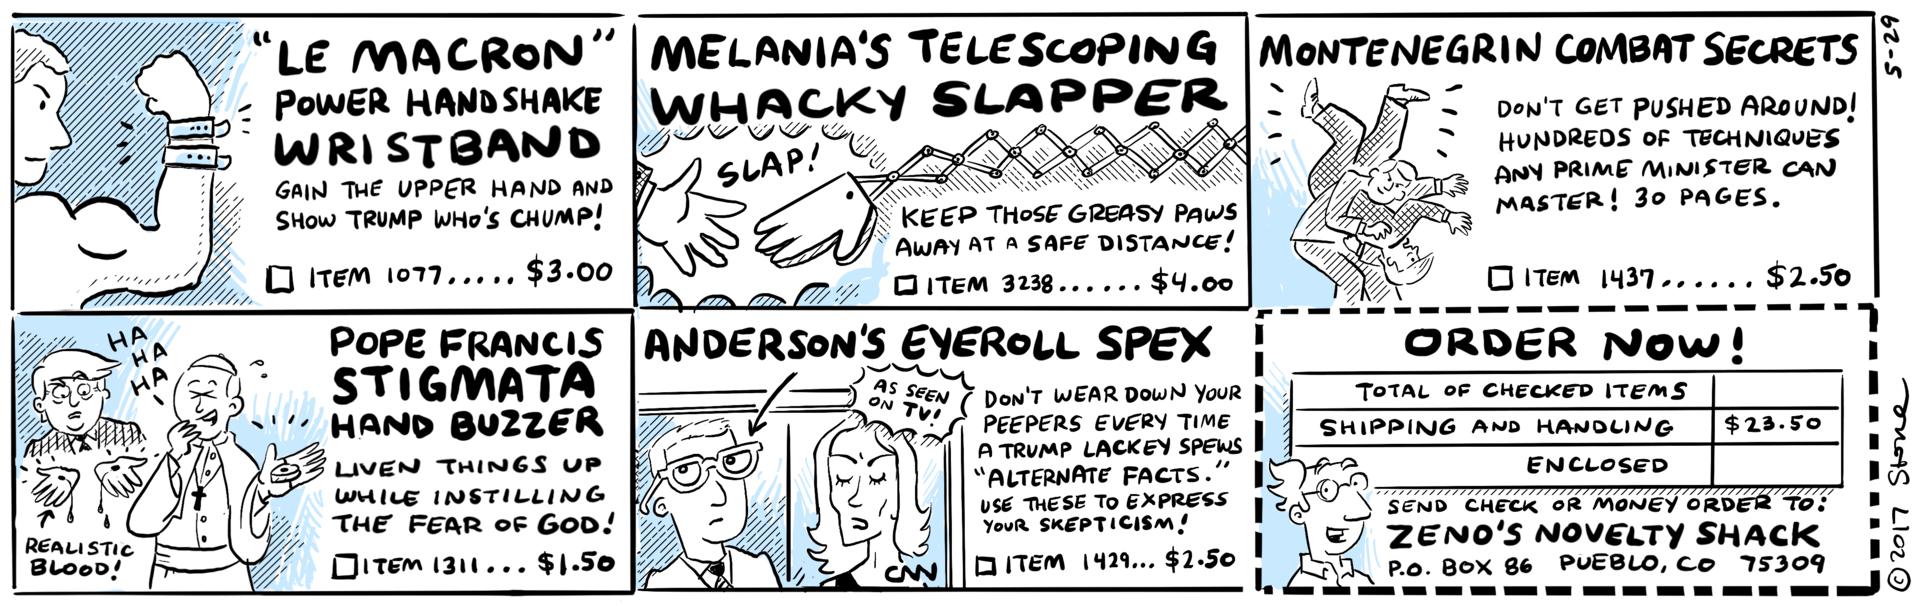 "LE MACRON"
POWER HANDSHAKE
WRISTBAND
GAIN THE UPPER HAND AND
SHOW TRUMP WHO'S CHUMP!
ITEM 1077..... $3.00
MELANIA'S TELESCOPING
WHACKY SLAPPER
SLAP!
KEEP THOSE GREASY PAWS
AWAY AT A SAFE DISTANCE!
ITEM 3238...... $4.00
MONTENEGRIN COMBAT SECRETS
DON'T GET PUSHED AROUND!
HUNDREDS OF TECHNIQUES
ANY PRIME MINISTER CAN
MASTER! 30 PAGES.
ITEM 1437...... $2.50
5-29
HA
HA
HA
POPE FRANCIS
STIGMATA
HAND BUZZER
LIVEN THINGS UP
WHILE INSTILLING
THE FEAR OF GOD!
REALISTIC
BLOOD!
ITEM 1311... $1.50
ANDERSON'S EYEROLL SPEX
AS SEEN
ON TV!
DON'T WEAR DOWN YOUR
PEEPERS EVERY TIME
A TRUMP LACKEY SPEWS
"ALTERNATE FACTS."
USE THESE TO EXPRESS
YOUR SKEPTICISM!
CNN
ITEM 1429... $2.50
ORDER NOW!
TOTAL OF CHECKED ITEMS
SHIPPING AND HANDLING $23.50
ENCLOSED
SEND CHECK OR MONEY ORDER TO:
ZENO'S NOVELTY SHACK
P.O. BOX 86 PUEBLO, CO 75309
©2017 Stone